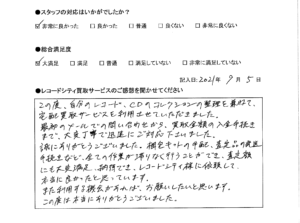 ●スタッフの対応はいかがでしたか？
☑非常に良かった □良かった □普通 □良くない □非常に良くない
●総合満足度
☑大満足 □満足 □普通 □満足していない □非常に満足していない
記入日:2021年 9月 5日
●レコードシティ買取サービスのご感想を聞かせてください
この度、自分のレコード、CDのコレクションの整理を兼ねて、
宅配買取サービスを利用させていただきました。
最初のメールでの問い合わせから、買取金額の入金手続き
まで、大変丁寧で迅速にご対応下さいました。
誠にありがとうございました。梱包キットの手配、査定品の発送
手続きなど、全ての作業が滞りなく行うことができ、査定額
にも大変満足、納得でき、レコードシティ様に依頼して、
本当に良かったと思っています。
また利用する機会があれば、お願いしたいと思います。
この度は本当にありがとうございました。